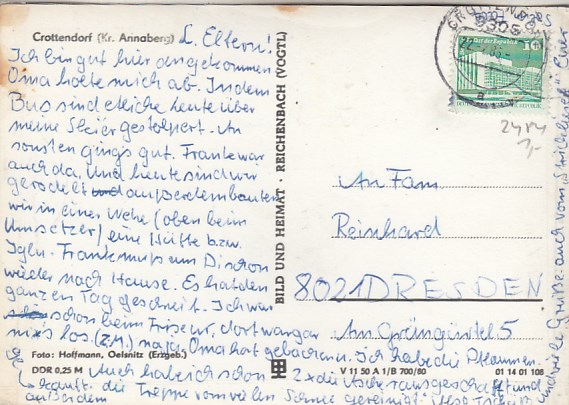 Crottendorf (Kr. Annaberg) L. Eltern!
Ich bin gut hier angekommen
Oma holte mich ab. In dem
Bus sind etliche Leute über
meine Skier gestolpert. An
sonsten ging's gut. Franke war
auch da. Und heute sind wir
gerodelt und außerdem bauten
wir in einer Wehe (oben beim
Umsetzer) eine Hütte bzw.
Iglu. Franke muß am Di schon
wieder nach Hause. Es hat den
ganzen Tag geschneit. Ich war
schon beim Friseur, dort war gar
nix los (z.M.) naja. Oma hat gebacken. Ich habe die Pflaumen
Foto: Hoffmann, Oelsnitz (Erzgeb.)
DDR 0,25 M Auch habe ich schon 2x die Asche rausgeschafft und
gekauft. die Treppe vom vielen Schnee gereinigt.
außerdem
BILD UND HEIMAT · REICHENBACH (VOGTL)
V 11 50 A 1/B 700/80 01 14 01 108
CROTTENDORF
9305
10
An Fam.
Reinhard
8021 DRESDEN
An Grüngürtel 5
und viele Grüße auch vom Euer